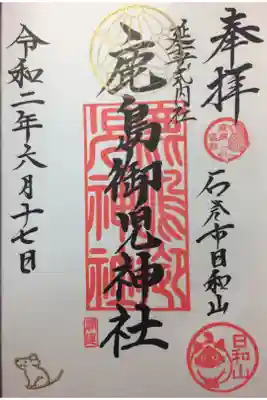 奉拝
石巻市日和山
日和山
延喜式内社
鹿島御児神社
令和二年六月十七日